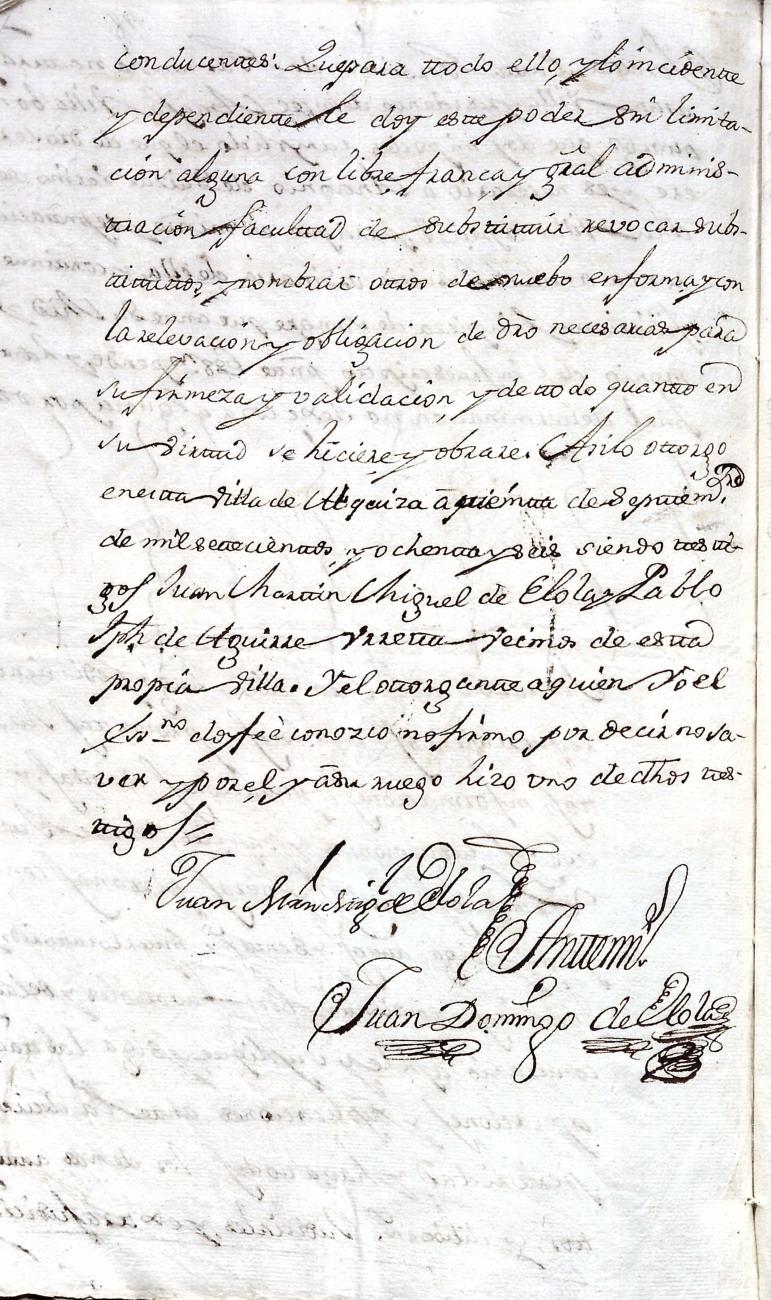 conducentes: Que para ttodo ello, y lo incidente
y dependiente le doy este poder sin limita-
ción alguna con libre, franca y gral adminis-
ttración facultad de substituir revocar subs-
titutos, y nombrar ottros de nuebo en forma y con
la relevación y obligación de dro necesarias para
su firmeza y validación, y de ttodo quantto en
su virttud se hiciere, y obrare. Asilo ottorgo
en esta villa de Usquiza a ttreinta de Septtiem,bre
de mil settecienttos, y ochentta y seis siendo testti-
gos Juan Marttin Miguel de Elola, y Pablo
Jph de Aguirre Urretta vecinos de esta
propia villa. Y el ottorgantte a quien Yo el
Essno doy feè conozco no firmo, por decir no sa-
ver y por el, y a su ruego hizo uno de dhos tes-
tigos=
Juan Mrn Mig de Elola
Antemi
Juan Domingo de Elola